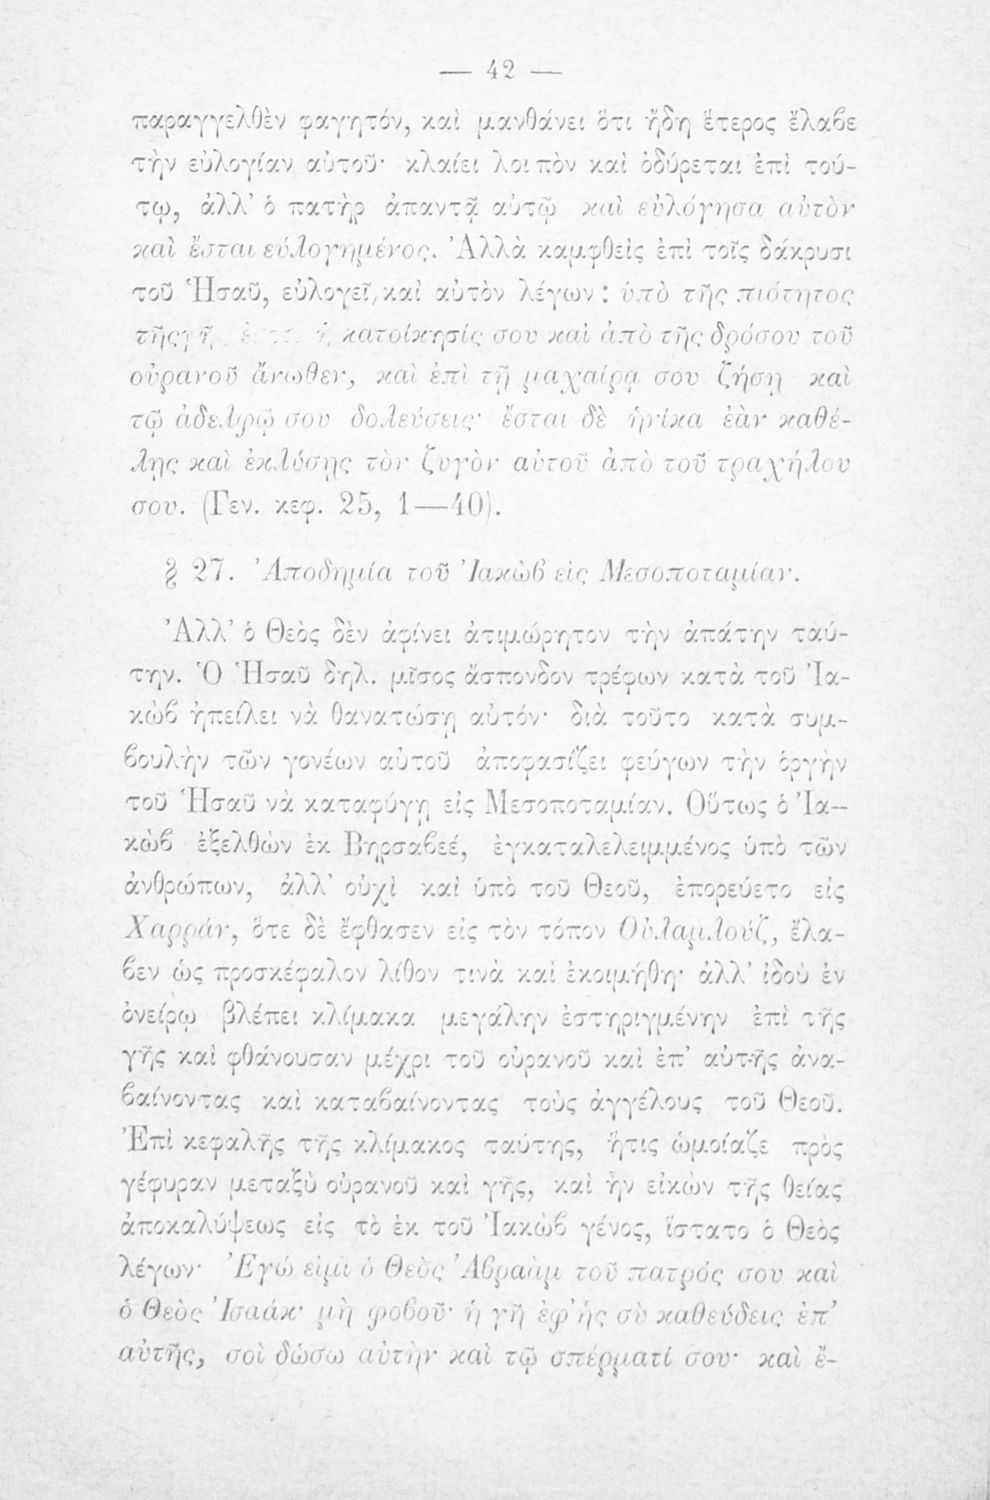 — 42 —
παραγγελθὲν φαγητόν, καὶ μανθάνει ὅτι ἤδη ἕτερος ἔλαβε
τὴν εὐλογίαν αὐτοῦ· κλαίει λοιπὸν καὶ ὀδύρεται ἐπὶ τού-
τῳ, ἀλλ' ὁ πατὴρ ἀπαντᾷ αὐτῷ καὶ εὐλόγησα αὐτὸν
καὶ ἔσται εὐλογημένος. Ἀλλὰ καμφθεὶς ἐπὶ τοῖς δάκρυσι
τοῦ Ἡσαῦ, εὐλογεῖ, καὶ αὐτὸν λέγων: ὑπὸ τῆς πιότητος
τῆς κατοίκησίς σου καὶ ἀπὸ τῆς δρόσου τοῦ
οὐρανοῦ ἄνωθεν, καὶ ἐπὶ τῇ μαχαίρᾳ σου ζήσῃ καὶ
τῷ ἀδελφῷ σου δολεύσεις· ἔσται δὲ ἡνίκα ἐὰν καθέ-
λῃς καὶ ἐκλύσῃς τὸν ζυγὸν αὐτοῦ ἀπὸ τοῦ τραχήλου
σου. (Γεν. κεφ. 25, 1—40).
§ 27. Ἀποδημία τοῦ Ἰακὼβ εἰς Μεσοποταμίαν.
Ἀλλ' ὁ Θεὸς δὲν ἀφίνει ἀτιμώρητον τὴν ἀπάτην ταύ-
την. Ὁ Ἡσαῦ δηλ. μῖσος ἄσπονδον τρέφων κατὰ τοῦ Ἰα-
κὼβ ἠπείλει νὰ θανατώσῃ αὐτόν· διὰ τοῦτο κατὰ συμ-
βουλὴν τῶν γονέων αὐτοῦ ἀποφασίζει φεύγων τὴν ὀργὴν
τοῦ Ἡσαῦ νὰ καταφύγῃ εἰς Μεσοποταμίαν. Οὕτως ὁ Ἰα-
κὼβ ἐξελθὼν ἐκ Βηρσαβεέ, ἐγκαταλελειμμένος ὑπὸ τῶν
ἀνθρώπων, ἀλλ' οὐχὶ καὶ ὑπὸ τοῦ Θεοῦ, ἐπορεύετο εἰς
Χαρράν, ὅτε δὲ ἔφθασεν εἰς τὸν τόπον Οὐλαμλούζ, ἔλα-
βεν ὡς προσκέφαλον λίθον τινὰ καὶ ἐκοιμήθη· ἀλλ' ἰδοὺ ἐν
ὀνείρῳ βλέπει κλίμακα μεγάλην ἐστηριγμένην ἐπὶ τῆς
γῆς καὶ φθάνουσαν μέχρι τοῦ οὐρανοῦ καὶ ἐπ' αὐτῆς ἀνα-
βαίνοντας καὶ καταβαίνοντας τοὺς ἀγγέλους τοῦ Θεοῦ.
Ἐπὶ κεφαλῆς τῆς κλίμακος ταύτης, ἥτις ὡμοίαζε πρὸς
γέφυραν μεταξὺ οὐρανοῦ καὶ γῆς, καὶ ἦν εἰκὼν τῆς θείας
ἀποκαλύψεως εἰς τὸ ἐκ τοῦ Ἰακὼβ γένος, ἵστατο ὁ Θεὸς
λέγων· Ἐγώ εἰμι ὁ Θεὸς Ἀβραὰμ τοῦ πατρός σου καὶ
ὁ Θεὸς Ἰσαάκ· μὴ φοβοῦ· ἡ γῆ ἐφ' ἧς σὺ καθεύδεις ἐπ'
αὐτῆς, σοὶ δώσω αὐτὴν καὶ τῷ σπέρματί σου· καὶ ἔ-